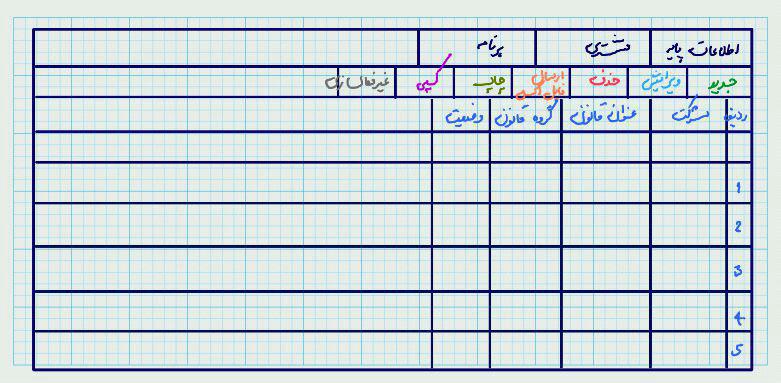 اطلاعات پایه مشتری برنامه
جدید ویرایش حذف ارسال فایل اکسل چاپ کپی غیرفعالسازی
ردیف شرکت عنوان قانون گروه قانون وضعیت
1
2
3
4
5